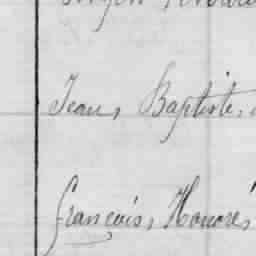 Jean, Baptiste,
François, Honoré,